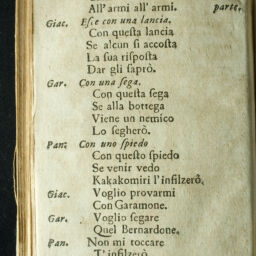 All' armi all' armi. parte.
Giac. Esce con una lancia.
Con questa lancia
Se alcun si accosta
La sua risposta
Dar gli saprò.
Gar. Con una sega.
Con questa sega
Se alla bottega
Viene un nemico
Lo segherò.
Pan. Con uno spiedo
Con questo spiedo
Se venir vedo
Kakakomiri l'infilzerò.
Giac. Voglio provarmi
Con Garamone.
Gar. Voglio segare
Quel Bernardone.
Pan. Non mi toccare
T' infilzerò